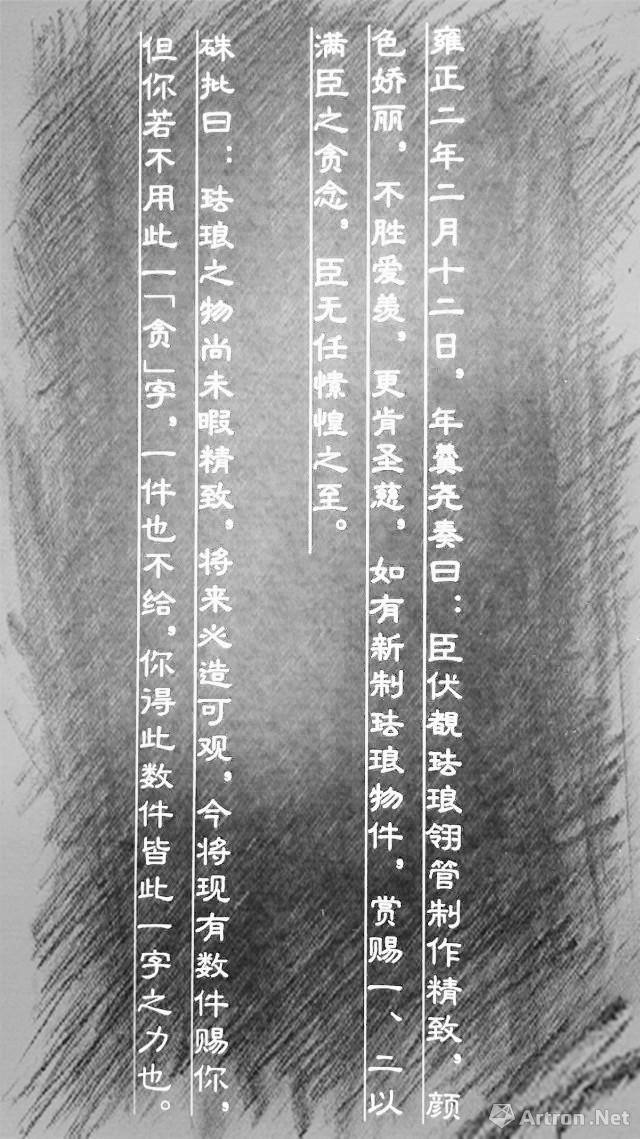 雍正二年二月十二日，年羹尧奏曰：臣伏覩珐琅翎管制作精致，颜
色娇丽，不胜爱羡，更肯圣慈，如有新制珐琅物件，赏赐一、二以
满臣之贪念，臣无任愫惶之至。
硃批曰：珐琅之物尚未暇精致，将来必造可观，今将现有数件赐你，
但你若不用此一「贪」字，一件也不给，你得此数件皆此一字之力也。
Artron.Net